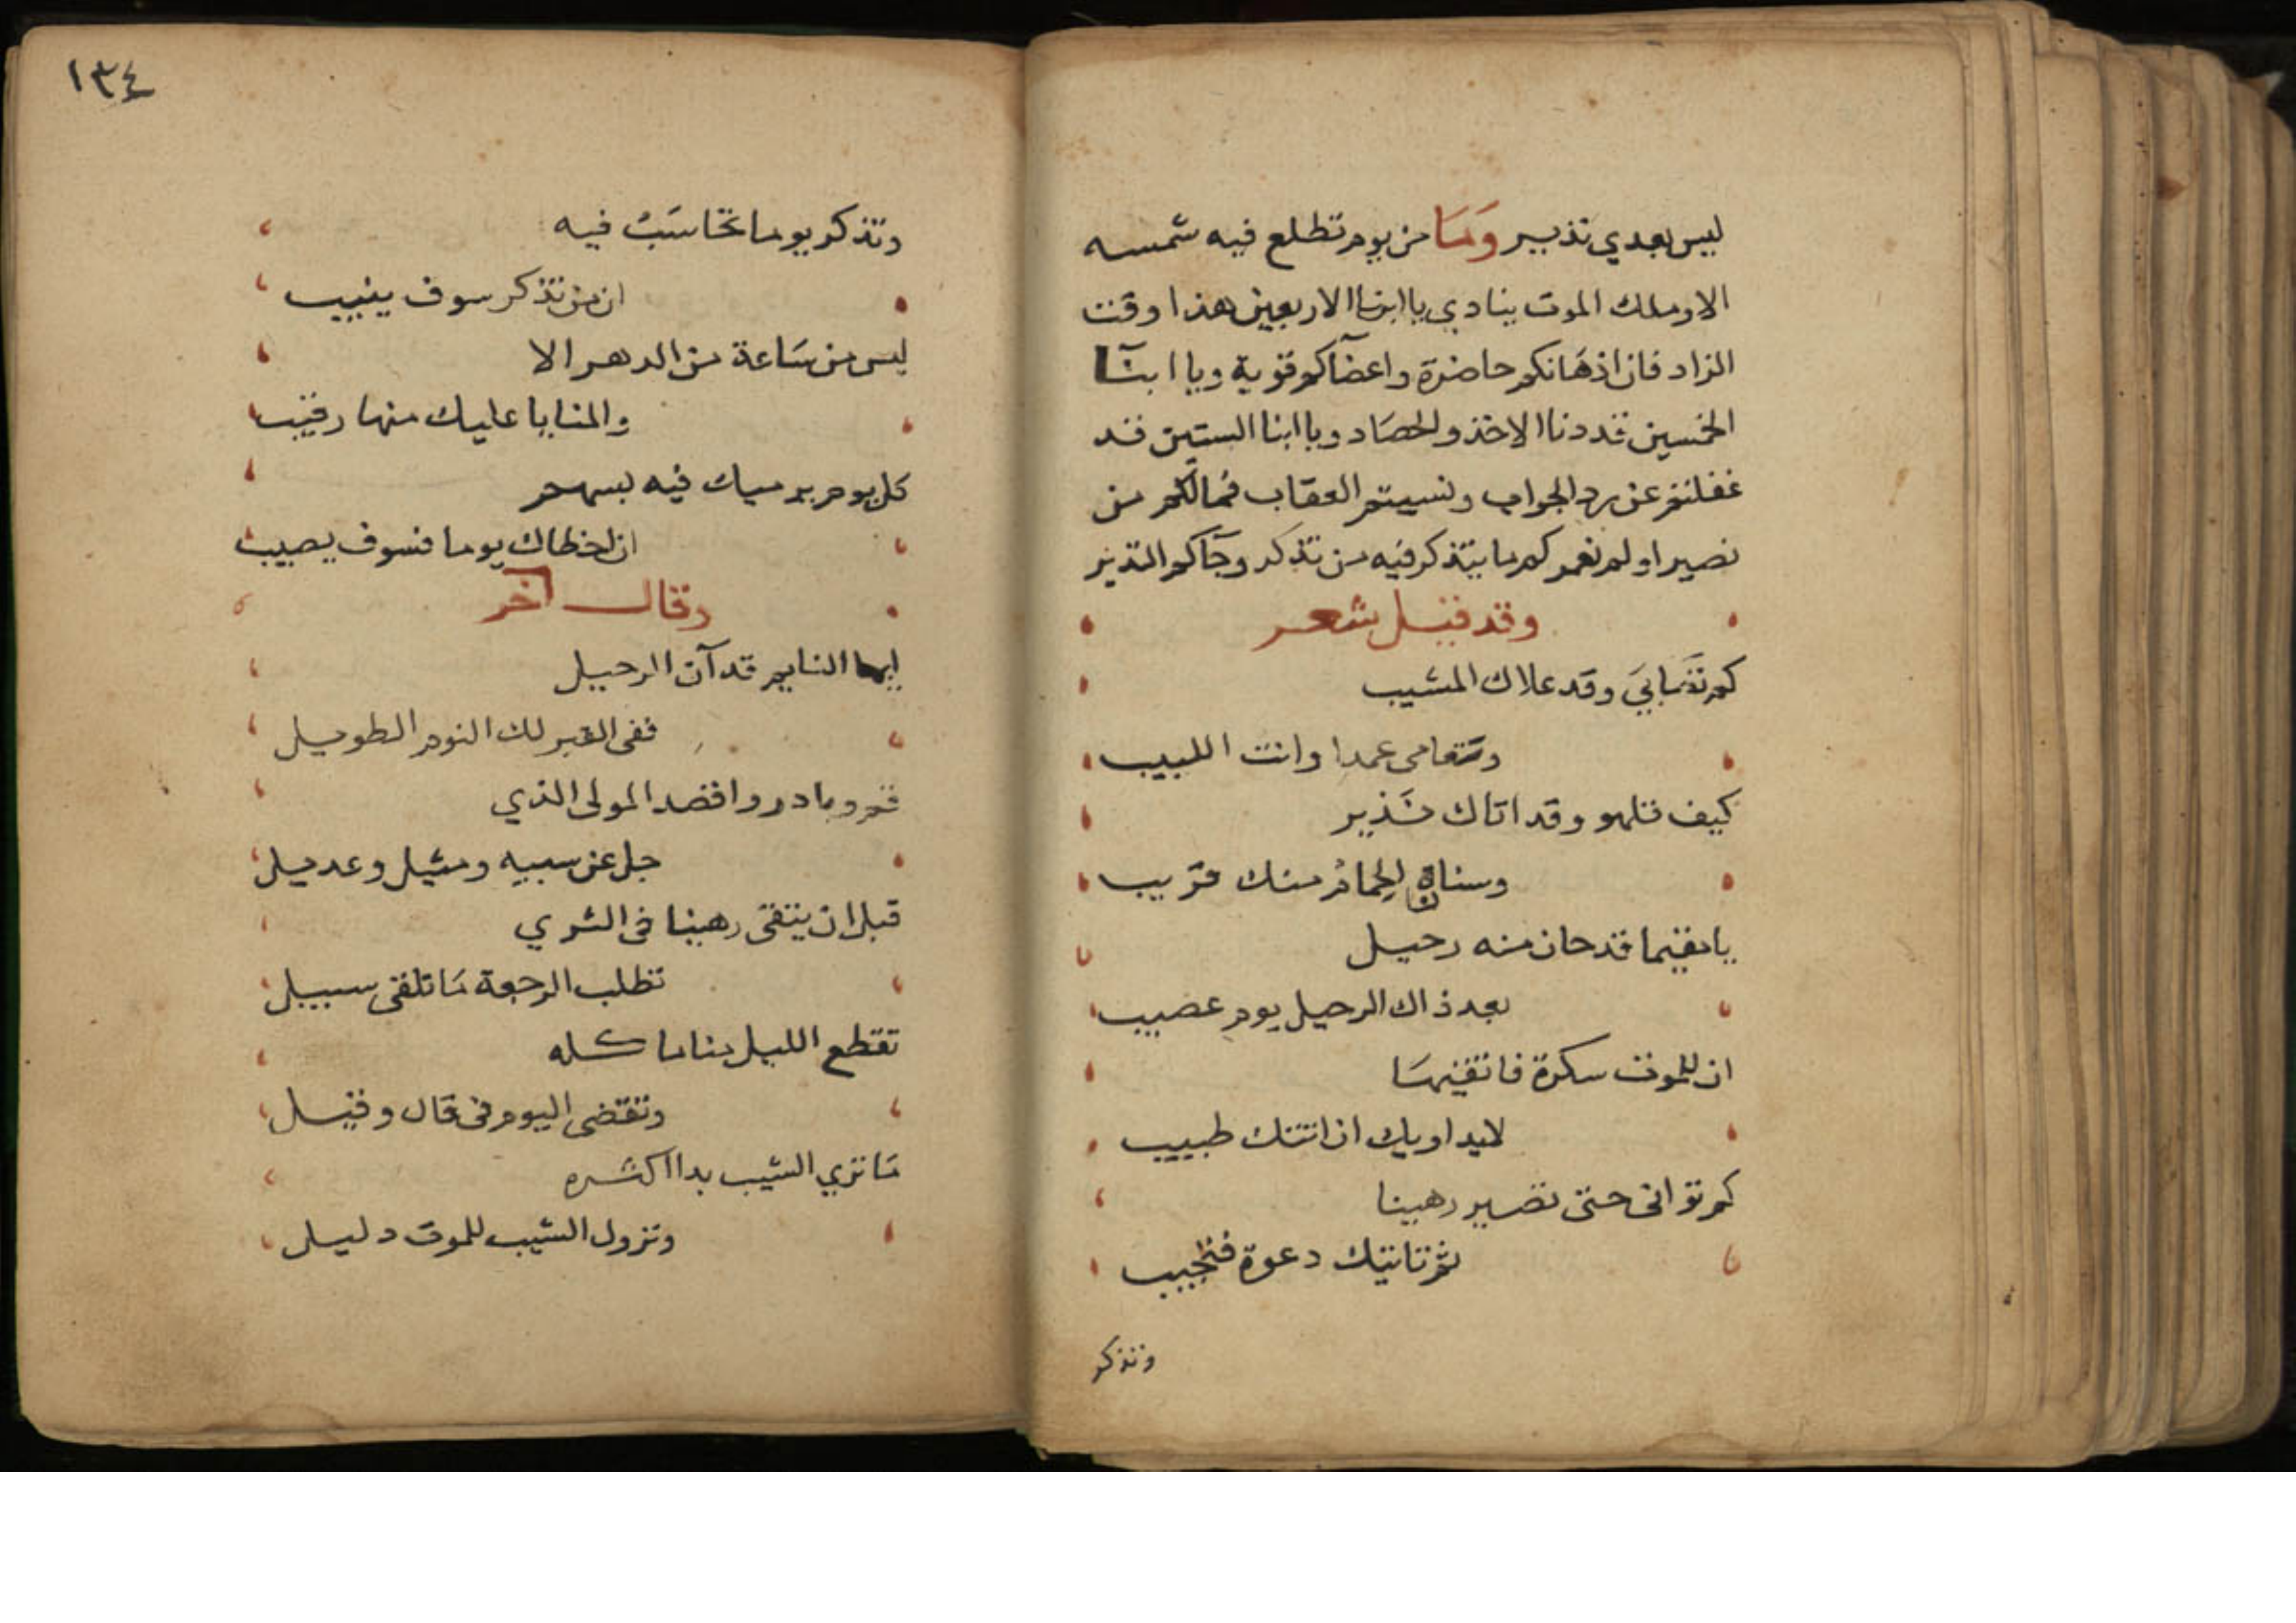 ليس بعدي نذير وَمَا من يوم تطلع فيه شمسه
الا وملك الموت ينادي يا ابنا الاربعين هذا وقت
الزاد فان اذهَانكم حاضرة واعضآكم قوية ويا ابنآ
الخمسين قد دنا الاخذ والحصَاد ويا ابنا الستين قد
غفلتم عن رد الجواب ونسيتم العقاب فما لكم من
نصير اولم نعمركم ما يتذكر فيه من تذكر وجآكم النذير
وقد قيل شعر
كم تصَابيَ وقد علاك المشيب
وتتعامى عمدا وانت اللبيب
كيف تلهو وقد اتاك نَذير
وسناة الحمام منك قريب
يا مقيما قد حان منه رحيل
بعد ذاك الرحيل يوم عصيب
ان للموت سكرة فاتقيهَا
لا يداويك ان اتتك طبيب
كم تواني حتى تصير رهينا
ثم تاتيك دعوة فتجيب
وتذكر
١٣٤
وتذكر يوما تحَاسَبُ فيه
ان من تذكر سوف ينيب
ليس من سَاعة من الدهر الا
والمنايا عليك منها رقيب
كل يوم يرميك فيه بسهم
ان اخطاك يوما فسوف يصيب
وقال آخر
ايها النايم قد آن الرحيل
ففي القبر لك النوم الطويل
قم وبادر واقصد المولى الذي
جل عن سبيه ومثيل وعديل
قبل ان يتقى رهينا في الثري
تطلب الرجعة مَا تلقى سبيل
تقطع الليل مناما كله
وتقتضى اليوم في قال وقيل
مَا تري الشيب بدا اكثره
ونزول الشيب للموت دليل